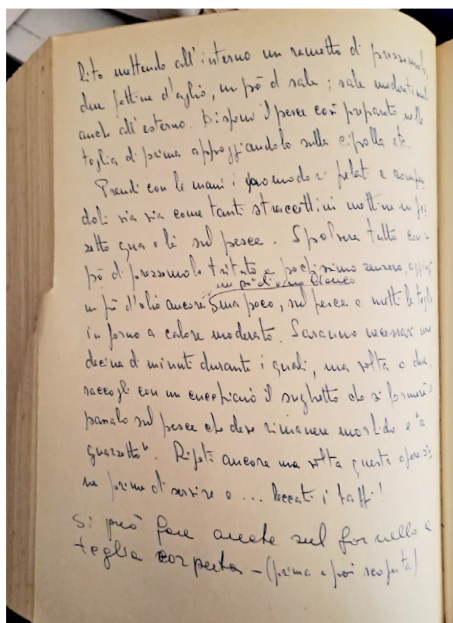 lito mettendo all'interno un rametto di prezzemolo,
due fettine d'aglio, un pò di sale; sale moderatamente
anche all'esterno. Disponi il pesce così preparato nella
teglia di prima appoggiandolo sulla cipolla etc.
Prendi con le mani i pomodori pelati e
doli via via come tanti straccettini mettine un pez
zetto qua e là sul pesce. Spolvera tutto con un
pò di prezzemolo tritato e pochissimo zenzero, aggiungi
un pò di vino bianco
un pò d'olio ancora, ma poco, sul pesce e metti la teglia
in forno a calore moderato. Saranno necessari una
decina di minuti durante i quali, una volta o due,
raccogli con un cucchiaio il sughetto che si formerà
passalo sul pesce che deve rimanere morbido e "a
guazzetto". Ripeti ancora una volta questa operazio
ne prima di servire e ... leccati i baffi!
Si può fare anche sul fornello a
teglia coperta - (prima e poi scoperta)